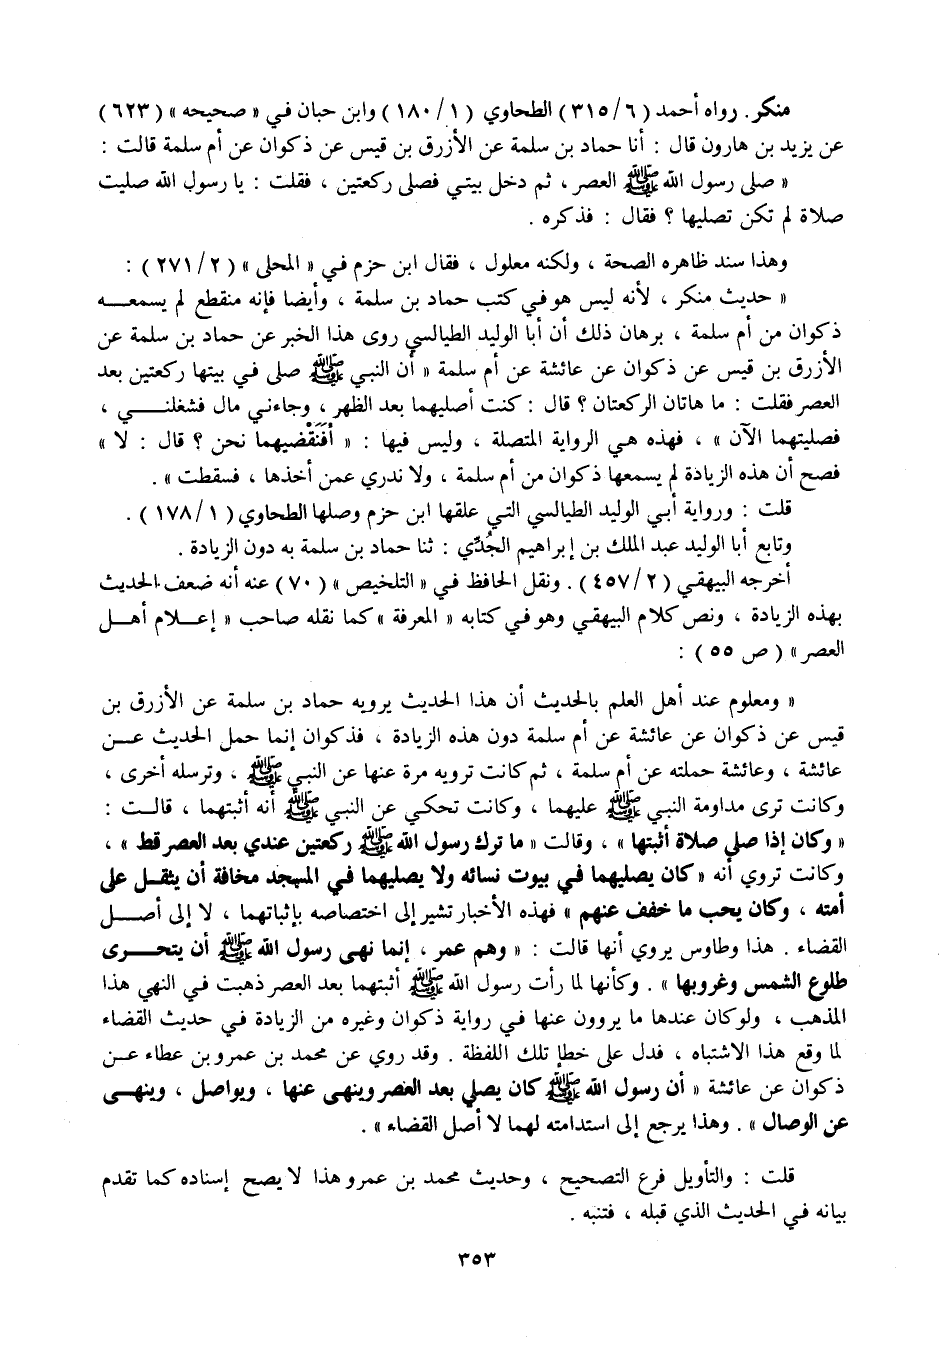 منكر . رواه أحمد ( ٣١٥/٦ ) الطحاوي ( ١٨٠/١ ) وابن حبان في « صحيحه » ( ٦٢٣ )
عن يزيد بن هارون قال : أنا حماد بن سلمة عن الأزرق بن قيس عن ذكوان عن أم سلمة قالت :
« صلى رسول الله ﷺ العصر ، ثم دخل بيتي فصلى ركعتين ، فقلت : يا رسول الله صليت
صلاة لم تكن تصليها ؟ فقال : فذكره .
وهذا سند ظاهره الصحة ، ولكنه معلول ، فقال ابن حزم في « المحلى » ( ٢٧١/٢ ) :
« حديث منكر ، لأنه ليس هو في كتب حماد بن سلمة ، وأيضا فإنه منقطع لم يسمعه
ذكوان من أم سلمة ، برهان ذلك أن أبا الوليد الطيالسي روى هذا الخبر عن حماد بن سلمة عن
الأزرق بن قيس عن ذكوان عن عائشة عن أم سلمة « أن النبي ﷺ صلى في بيتها ركعتين بعد
العصر فقلت : ما هاتان الركعتان ؟ قال : كنت أصليهما بعد الظهر ، وجاءني مال فشغلني ،
فصليتهما الآن » ، فهذه هي الرواية المتصلة ، وليس فيها : « أَفَنَقْضيهما نحن ؟ قال : لا »
فصح أن هذه الزيادة لم يسمعها ذكوان من أم سلمة ، ولا ندري عمن أخذها ، فسقطت » .
قلت : ورواية أبي الوليد الطيالسي التي علقها ابن حزم وصلها الطحاوي ( ١٧٨/١ ) .
وتابع أبا الوليد عبد الملك بن إبراهيم الجُدِّي : ثنا حماد بن سلمة به دون الزيادة .
أخرجه البيهقي ( ٤٥٧/٢ ) . ونقل الحافظ في « التلخيص » ( ٧٠ ) عنه أنه ضعف الحديث
بهذه الزيادة ، ونص كلام البيهقي وهو في كتابه « المعرفة » كما نقله صاحب « إعلام أهل
العصر » ( ص ٥٥ ) :
« ومعلوم عند أهل العلم بالحديث أن هذا الحديث يرويه حماد بن سلمة عن الأزرق بن
قيس عن ذكوان عن عائشة عن أم سلمة دون هذه الزيادة ، فذكوان إنما حمل الحديث عن
عائشة ، وعائشة حملته عن أم سلمة ، ثم كانت ترويه مرة عنها عن النبي ﷺ ، وترسله أخرى ،
وكانت ترى مداومة النبي ﷺ عليهما ، وكانت تحكي عن النبي ﷺ أنه أثبتهما ، قالت :
« وكان إذا صلى صلاة أثبتها » ، وقالت « ما ترك رسول الله ﷺ ركعتين عندي بعد العصر قط » ،
وكانت تروي أنه « كان يصليهما في بيوت نسائه ولا يصليهما في المسجد مخافة أن يثقل على
أمته ، وكان يحب ما خفف عنهم » فهذه الأخبار تشير إلى اختصاصه بإثباتهما ، لا إلى أصل
القضاء . هذا وطاوس يروي أنها قالت : « وهم عمر ، إنما نهى رسول الله ﷺ أن يتحرى
طلوع الشمس وغروبها » . وكأنها لما رأت رسول الله ﷺ أثبتهما بعد العصر ذهبت في النهي هذا
المذهب ، ولو كان عندها ما يروون عنها في رواية ذكوان وغيره من الزيادة في حديث القضاء
لما وقع هذا الاشتباه ، فدل على خطإ تلك اللفظة . وقد روي عن محمد بن عمرو بن عطاء عن
ذكوان عن عائشة « أن رسول الله ﷺ كان يصلي بعد العصر وينهى عنها ، ويواصل ، وينهى
عن الوصال » . وهذا يرجع إلى استدامته لهما لا أصل القضاء » .
قلت : والتأويل فرع التصحيح ، وحديث محمد بن عمرو هذا لا يصح إسناده كما تقدم
بيانه في الحديث الذي قبله ، فتنبه .
٣٥٣